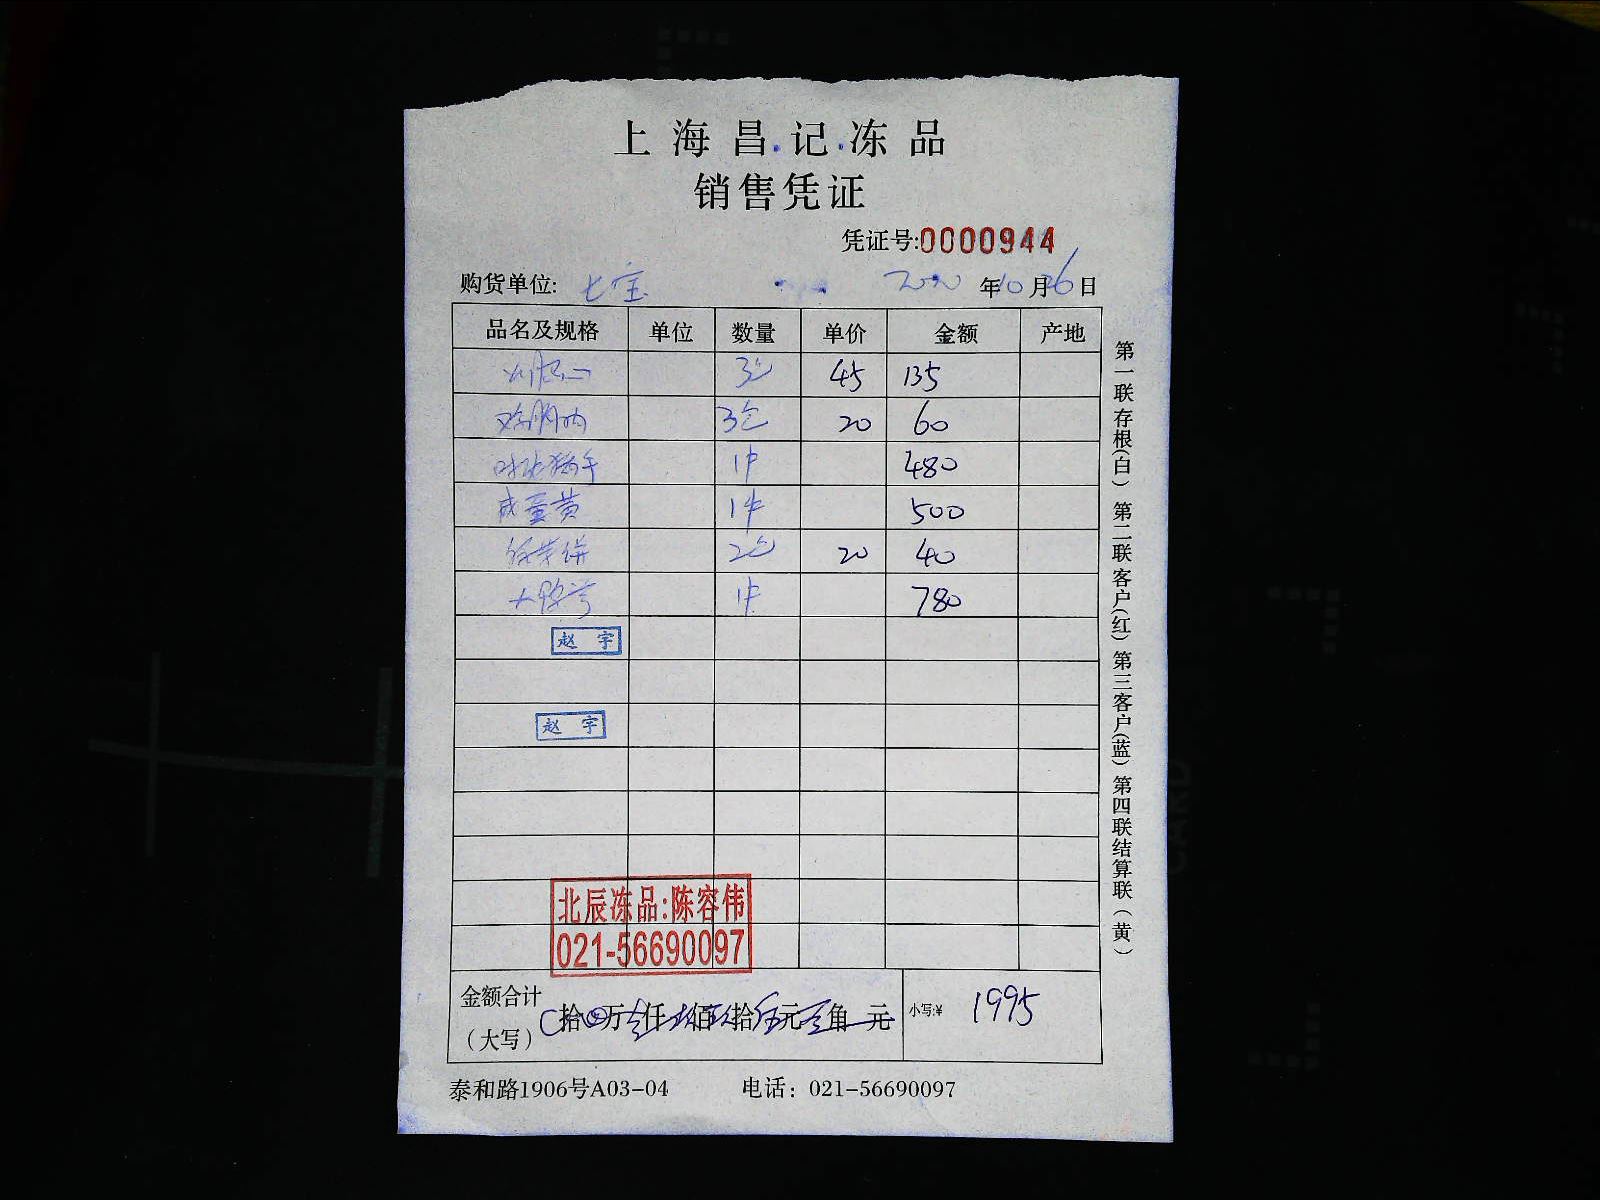 上海昌记冻品
销售凭证
凭证号:0000944
购货单位: 七宝 2020年10月26日
品名及规格 单位 数量 单价 金额 产地
3包 45 135
3包 20 60
1件 480
咸蛋黄 1件 500
2包 20 40
1件 780
赵宇
赵宇
北辰冻品:陈容伟
021-56690097
金额合计(大写) 拾 万 仟 佰 拾 元 角 元 小写:¥ 1995
泰和路1906号A03-04 电话: 021-56690097
第一联存根(白) 第二联客户(红) 第三客户(蓝) 第四联结算联(黄)